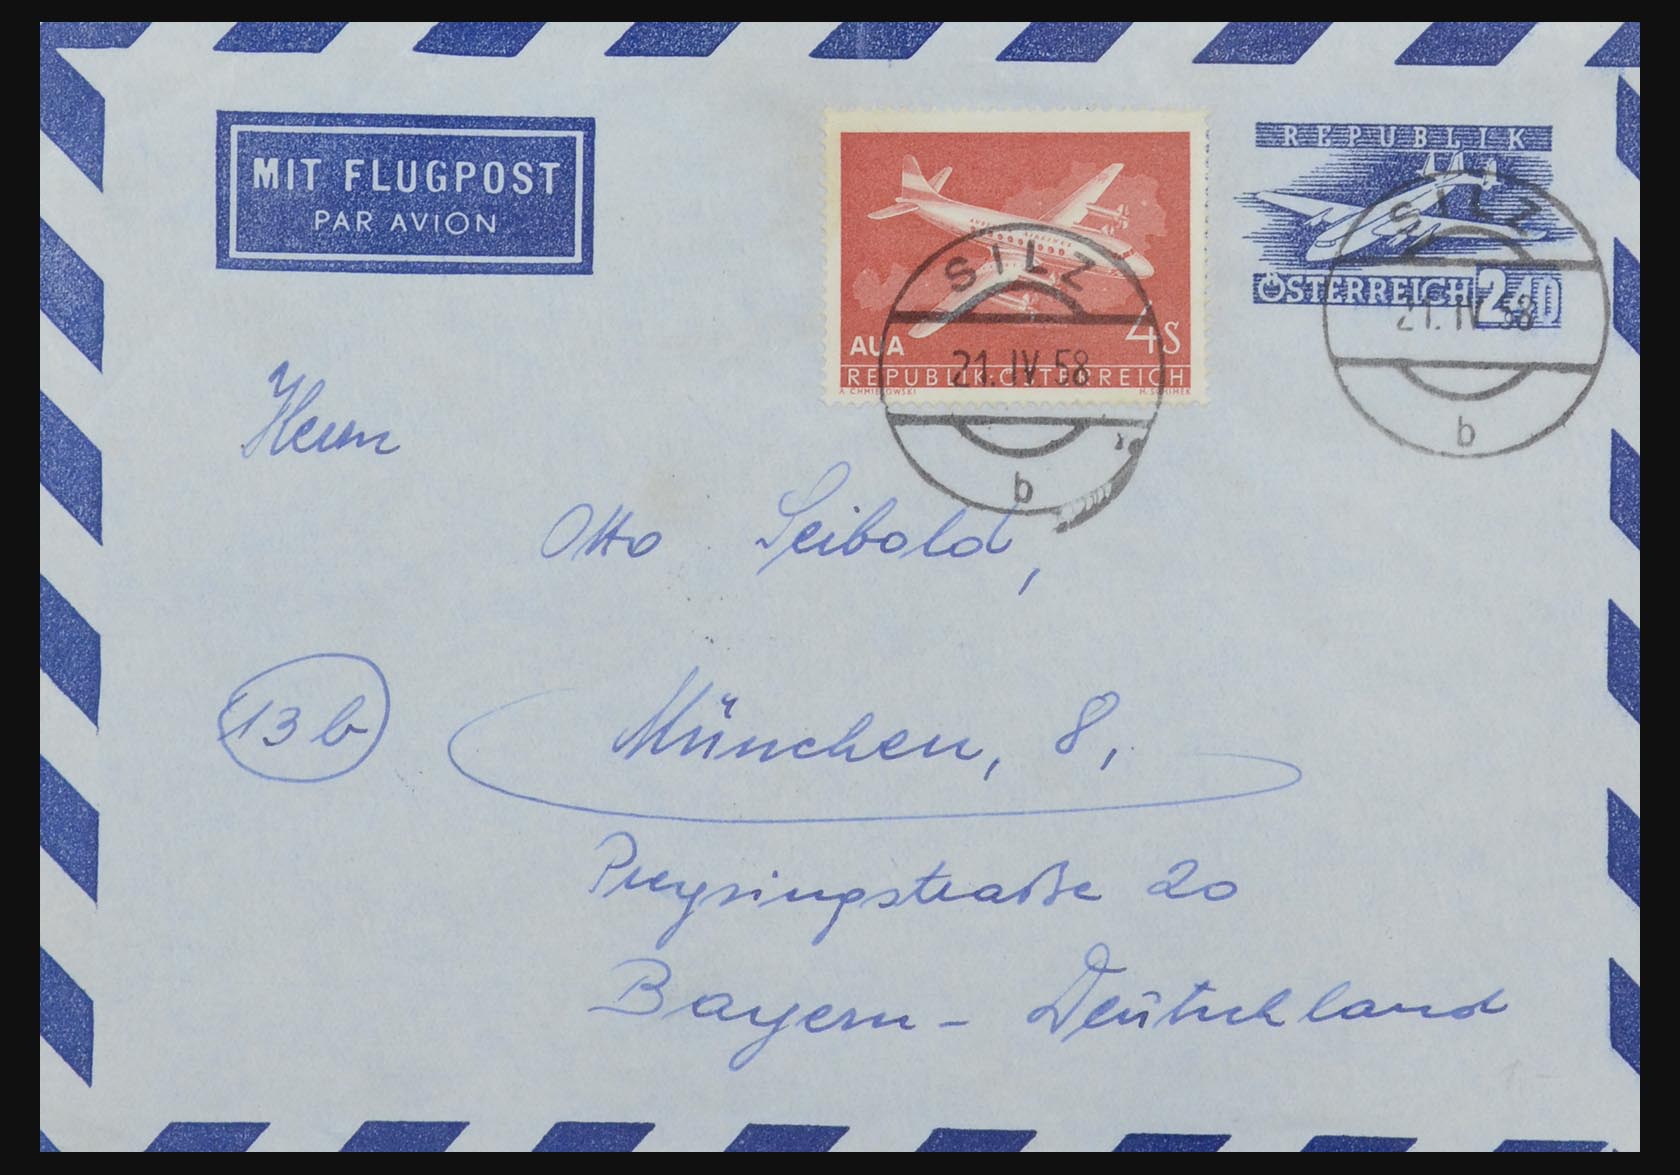 MIT FLUGPOST
PAR AVION
AUA
4S
REPUBLIK ÖSTERREICH
REPUBLIK
ÖSTERREICH 2.40
SILZ
21.IV.58
b
SILZ
21.IV.58
b
Herrn
Otto Seibold,
13b
München, 8,
Preysingstraße 20
Bayern - Deutschland